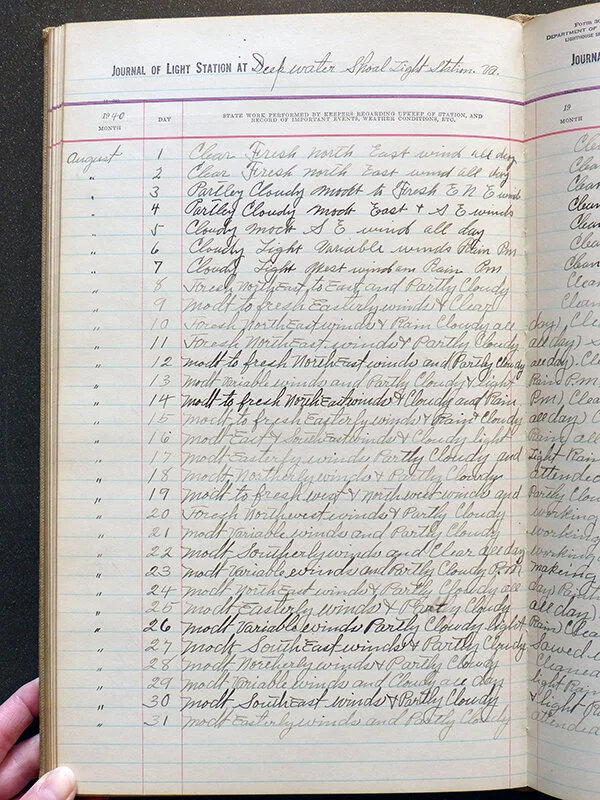 JOURNAL OF LIGHT STATION AT Deep water Shoal Light Station Va.
1940
MONTH
DAY
STATE WORK PERFORMED BY KEEPERS REGARDING UPKEEP OF STATION, AND
RECORD OF IMPORTANT EVENTS, WEATHER CONDITIONS, ETC.
August 1 Clear Fresh North East wind all day
" 2 Clear Fresh North East wind all day
" 3 Partley Cloudy modt to Fresh E N E wind
" 4 Partley Cloudy modt East & S E winds
" 5 Cloudy modt S E wind all day
" 6 Cloudy Light Variable winds Rain Pm
" 7 Cloudy Light West wind am Rain Pm
" 8 Fresh NorthEast to East and Partly Cloudy
" 9 Modt to fresh Easterly winds & Clear
" 10 Fresh NorthEast winds & Rain Cloudy all day)
" 11 Fresh NorthEast winds & Partly Cloudy all day)
" 12 modt to fresh NorthEast winds and Partly Cloudy all day)
" 13 modt Variable winds and Partly Cloudy & light Rain P.m)
" 14 modt to fresh NorthEast winds & Cloudy and Rain P.m)
" 15 modt to fresh Easterly winds & Rain & Cloudy all day)
" 16 modt East & SouthEast winds & Cloudy light Rain all
" 17 modt Easterly winds Partly Cloudy and Light Rain
" 18 Modt Northerly winds & Partly Cloudy attended
" 19 modt to fresh west & Northwest winds and Partly Cloudy
" 20 Fresh Northwest winds & Partly Cloudy working
" 21 modt Variable winds and Partly Cloudy working
" 22 modt Southerly winds and Clear all day working
" 23 modt Variable winds and Partly Cloudy making
" 24 modt NorthEast winds & Partly Cloudy all day)
" 25 modt Easterly winds & Partly Cloudy all day)
" 26 modt Variable winds Partly Cloudy light Rain
" 27 modt SouthEast winds & Partly Cloudy Sawed
" 28 modt Northerly winds & Partly Cloudy Cleaned
" 29 modt Variable winds and Cloudy all day Light Rain
" 30 modt SouthEast winds & Partly Cloudy & Light
" 31 modt Easterly winds and Partly Cloudy attended
DEPARTMENT OF
LIGHTHOUSE
JOURNA
19
MONTH